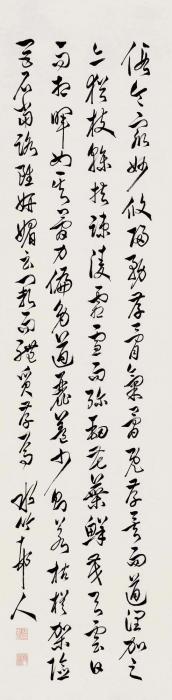 假令眾妙攸歸務存骨氣骨既存矣而遒潤加之
亦猶枝幹扶疏凌霜雪而彌勁花葉鮮茂與雲日
而相暉如其骨力偏多遒麗蓋少則若枯槎架險
巨石當路雖妍媚云闕而體質存焉 水竹邨人